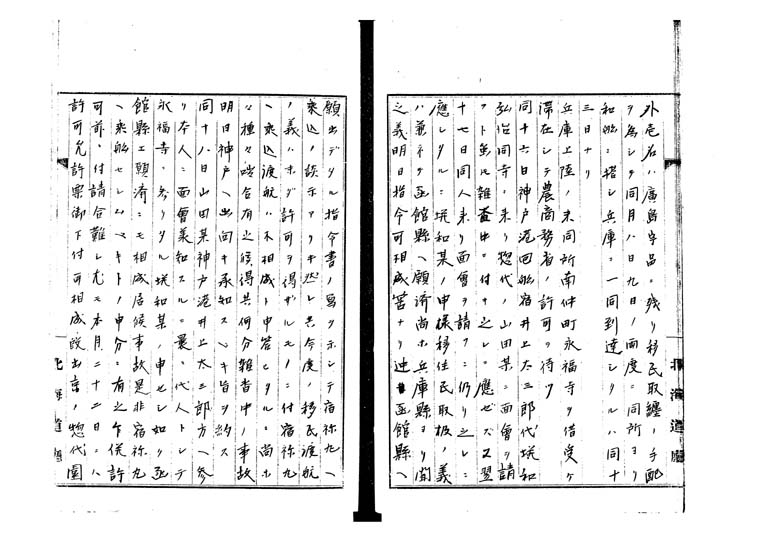 外壱名ハ廣島宇品ニ残リ移民取纏ノ手配
ヲ為シテ同月八日九日ノ両度ニ同所ヨリ
和船ニ搭シ兵庫ニ一同到達シタルハ同十
三日ナリ
兵庫上陸ノ末同所南仲町永福寺ヲ借受ケ
滞在シテ農商務省ノ許可ヲ待ツ
同十六日神戸港回船宿井上太三郎代埦和
弘治同寺ニ来リ惣代ノ山田某ニ面會ヲ請
フト虽モ雑沓中ニ付キ之レニ應ゼズ又翌
十七日同人来リ面會ヲ請フニ仍リ之レニ
應シタルニ埦和某ノ申様移住民取扱ノ義
ハ兼テ函館縣ヘ願済尚ホ兵庫縣ヨリ開
之義明日指令可相成筈ナリ迚函館縣ヘ
願出デタル指令書ノ寫ヲ示シテ宿祢丸ヘ
乗込ノ談示アリキ然レ共今度ノ移民渡航
ノ義ハ未ダ許可ヲ得ザルモノニ付宿祢丸
ヘ乗込渡航ハ不相成ト申答ヒタルニ尚ホ
種々咄合有之候得共何分雑沓中ノ事故
明日神戸ヘ出向キ承知スベキ旨ヲ約ス
同十八日山田某神戸港井上太三郎方ヘ参
リ本人ニ面會義知スルニ曩ニ代人トシテ
永福寺ニ参リタル埦和某ノ申セシ如ク函
館縣エ願済ニモ相成居候事故是非宿祢丸
ヘ乗船セシムベキトノ申分ニ有之乍併許
可前ニ付請合難シ尤モ本月二十二日ニハ
許可允許票御下付可相成院出京ノ惣代圓
北海道廳